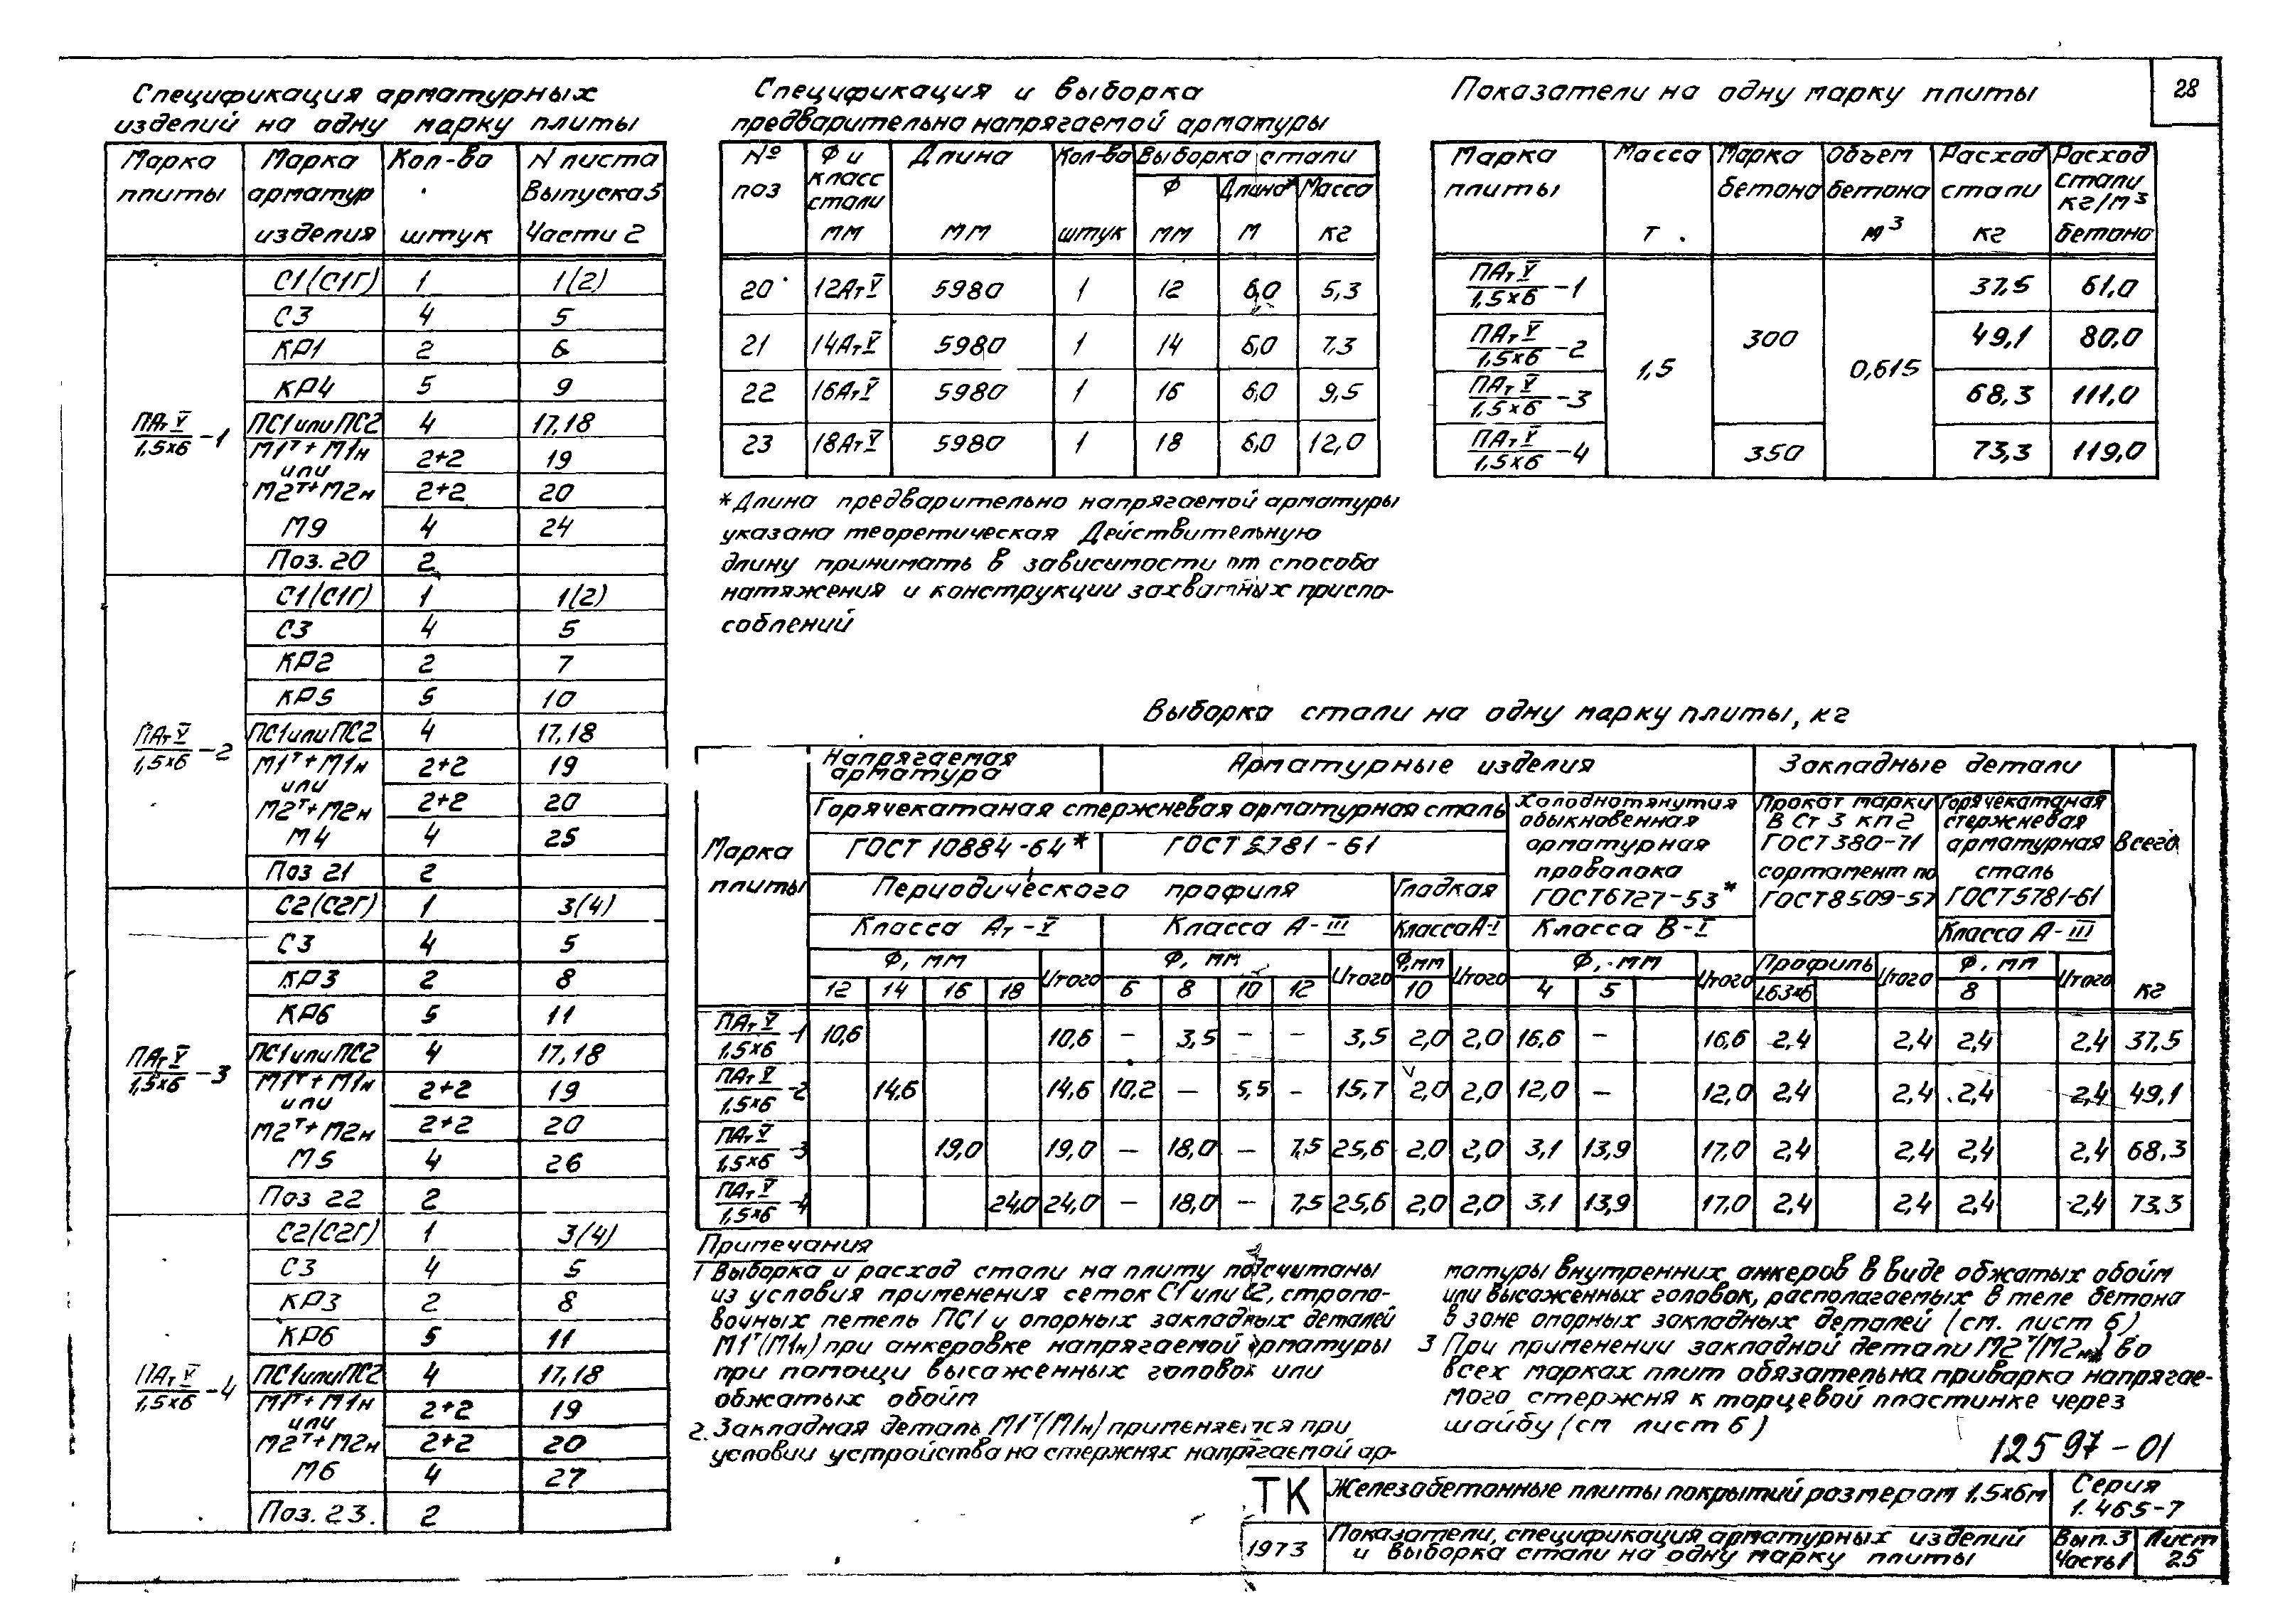 28
Спецификация арматурных
изделий на одну марку плиты
Марка плиты | Марка арматур изделия | Кол-во штук | N листа Выпуска 5 Части 2
ПАт V/1,5×6 -1 | С1(С1Г) | 1 | 1(2)
С3 | 4 | 5
КР1 | 2 | 6
КР4 | 5 | 9
ПС1 или ПС2 | 4 | 17,18
М1т+М1н | 2+2 | 19
или
М2т+М2н | 2+2 | 20
М9 | 4 | 24
Поз. 20 | 2
ПАт V/1,5×6 -2 | С1(С1Г) | 1 | 1(2)
С3 | 4 | 5
КР2 | 2 | 7
КР5 | 5 | 10
ПС1 или ПС2 | 4 | 17,18
М1т+М1н | 2+2 | 19
или
М2т+М2н | 2+2 | 20
М4 | 4 | 25
Поз 21 | 2
ПАт V/1,5×6 -3 | С2(С2Г) | 1 | 3(4)
С3 | 4 | 5
КР3 | 2 | 8
КР6 | 5 | 11
ПС1 или ПС2 | 4 | 17,18
М1т+М1н | 2+2 | 19
или
М2т+М2н | 2+2 | 20
М5 | 4 | 26
Поз 22 | 2
ПАт V/1,5×6 -4 | С2(С2Г) | 1 | 3(4)
С3 | 4 | 5
КР3 | 2 | 8
КР6 | 5 | 11
ПС1 или ПС2 | 4 | 17,18
М1т+М1н | 2+2 | 19
или
М2т+М2н | 2+2 | 20
М6 | 4 | 27
Поз. 23. | 2
Спецификация и выборка
предварительно напрягаемой арматуры
№ поз | Ф и класс стали мм | Длина мм | Кол-во штук | Выборка стали
Ф мм | Длина* м | Масса кг
20 | 12Ат V | 5980 | 1 | 12 | 6,0 | 5,3
21 | 14Ат V | 5980 | 1 | 14 | 6,0 | 7,3
22 | 16Ат V | 5980 | 1 | 16 | 6,0 | 9,5
23 | 18Ат V | 5980 | 1 | 18 | 6,0 | 12,0
* Длина предварительно напрягаемой арматуры
указана теоретическая Действительную
длину принимать в зависимости от способа
натяжения и конструкции захватных приспо-
соблений
Показатели на одну марку плиты
Марка плиты | Масса т. | Марка бетона | Объем бетона м³ | Расход стали кг | Расход стали кг/м³ бетона
ПАт V/1,5×6 -1 | 1,5 | 300 | 0,615 | 37,5 | 61,0
ПАт V/1,5×6 -2 | 49,1 | 80,0
ПАт V/1,5×6 -3 | 68,3 | 111,0
ПАт V/1,5×6 -4 | 350 | 73,3 | 119,0
Выборка стали на одну марку плиты, кг
Марка плиты | Напрягаемая арматура | Арматурные изделия | Закладные детали | Всего кг
Горячекатаная стержневая арматурная сталь | Холоднотянутия обыкновенная арматурная проволока ГОСТ 6727-53* | Прокат марки В Ст 3 кп2 ГОСТ 380-71 сортамент по ГОСТ 8509-57 | Горячекатаная стержневая арматурная сталь ГОСТ 5781-61
ГОСТ 10884-64* | ГОСТ 5781-61
Периодического профиля | Гладкая
Класса Ат-V | Класса А-III | Класса А-I | Класса В-I | Класса А-III
Ф, мм | Итого | Ф, мм | Итого | Ф,мм | Итого | Ф, мм | Итого | Профиль | Итого | Ф, мм | Итого
12 | 14 | 16 | 18 | 6 | 8 | 10 | 12 | 10 | 4 | 5 | L63×6 | 8
ПАт V/1,5×6 -1 | 10,6 | 10,6 | – | 3,5 | – | – | 3,5 | 2,0 | 2,0 | 16,6 | – | 16,6 | 2,4 | 2,4 | 2,4 | 2,4 | 37,5
ПАт V/1,5×6 -2 | 14,6 | 14,6 | 10,2 | – | 5,5 | – | 15,7 | 2,0 | 2,0 | 12,0 | – | 12,0 | 2,4 | 2,4 | 2,4 | 2,4 | 49,1
ПАт V/1,5×6 -3 | 19,0 | 19,0 | – | 18,0 | – | 7,5 | 25,6 | 2,0 | 2,0 | 3,1 | 13,9 | 17,0 | 2,4 | 2,4 | 2,4 | 2,4 | 68,3
ПАт V/1,5×6 -4 | 24,0 | 24,0 | – | 18,0 | – | 7,5 | 25,6 | 2,0 | 2,0 | 3,1 | 13,9 | 17,0 | 2,4 | 2,4 | 2,4 | 2,4 | 73,3
Примечания
1 Выборка и расход стали на плиту подсчитаны
из условия применения сеток С1 или С2, стропо-
вочных петель ПС1 и опорных закладных деталей
М1т(М1н) при анкеровке напрягаемой арматуры
при помощи высаженных головок или
обжатых обойм
2. Закладная деталь М1т(М1н) применяется при
условии устройства на стержнях напрягаемой ар-
матуры внутренних анкеров в виде обжатых обойм
или высаженных головок, располагаемых в теле бетона
в зоне опорных закладных деталей (см. лист 6)
3 При применении закладной детали М2т(М2н) во
всех марках плит обязательна приварка напрягае-
мого стержня к торцевой пластинке через
шайбу (см лист 6)
12597-01
ТК | Железобетонные плиты покрытий размером 1,5×6м | Серия 1.465-7
1973 | Показатели, спецификация арматурных изделий и выборка стали на одну марку плиты | Вып. 3 Часть 1 | Лист 25